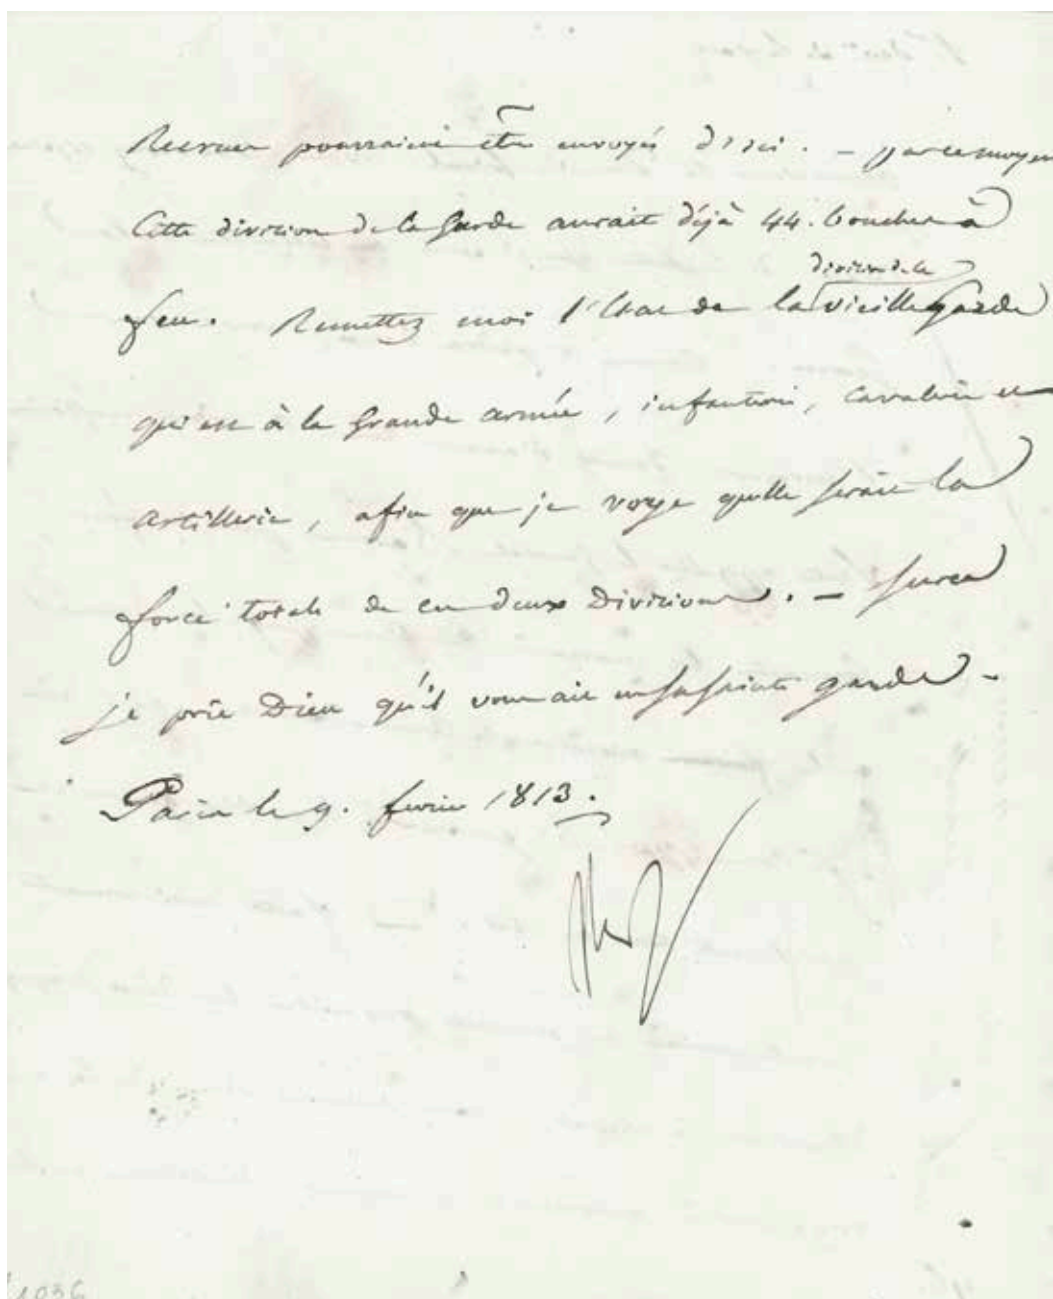 Recrues pourraient être envoyés d'ici. - par ce moyen
Cette division de la Garde aurait déjà 44. bouches à
feu. Remettez moi l'État de la division de la vieille garde
qui est à la grande armée, infanterie, cavalerie et
artillerie, afin que je voye quelle serait la
force totale de ces deux divisions. - Sur ce
je prie Dieu qu'il vous ait en sa sainte garde -
Paris le 9. fevrier 1813.
1036